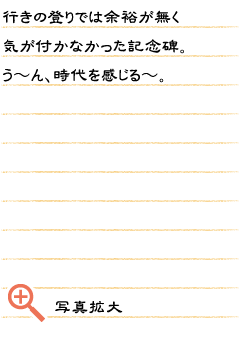 行きの登りでは余裕が無く
気が付かなかった記念碑。
う～ん、時代を感じる～。
写真拡大